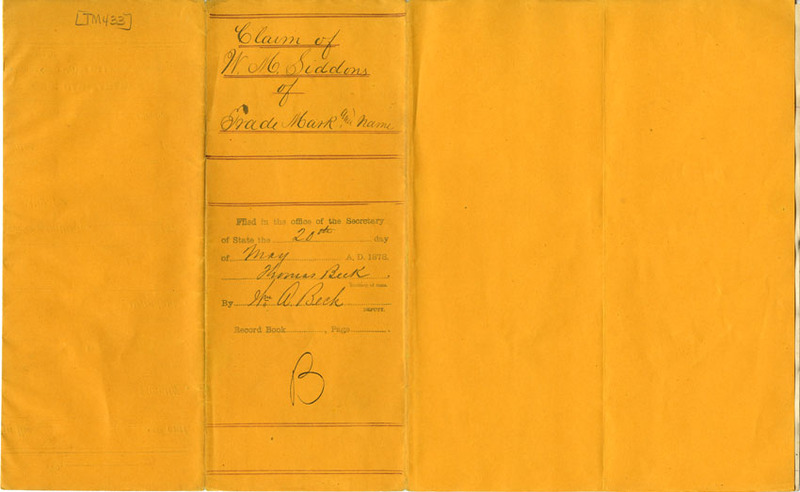 [TM433]
Claim of
W. M. Siddons
of
Trade Mark and Name
Filed in the office of the Secretary
of State the 20th day
of May A. D. 1878.
Thomas Beck
Secretary of State.
By Wm A. Beck
DEPUTY.
Record Book , Page .
B